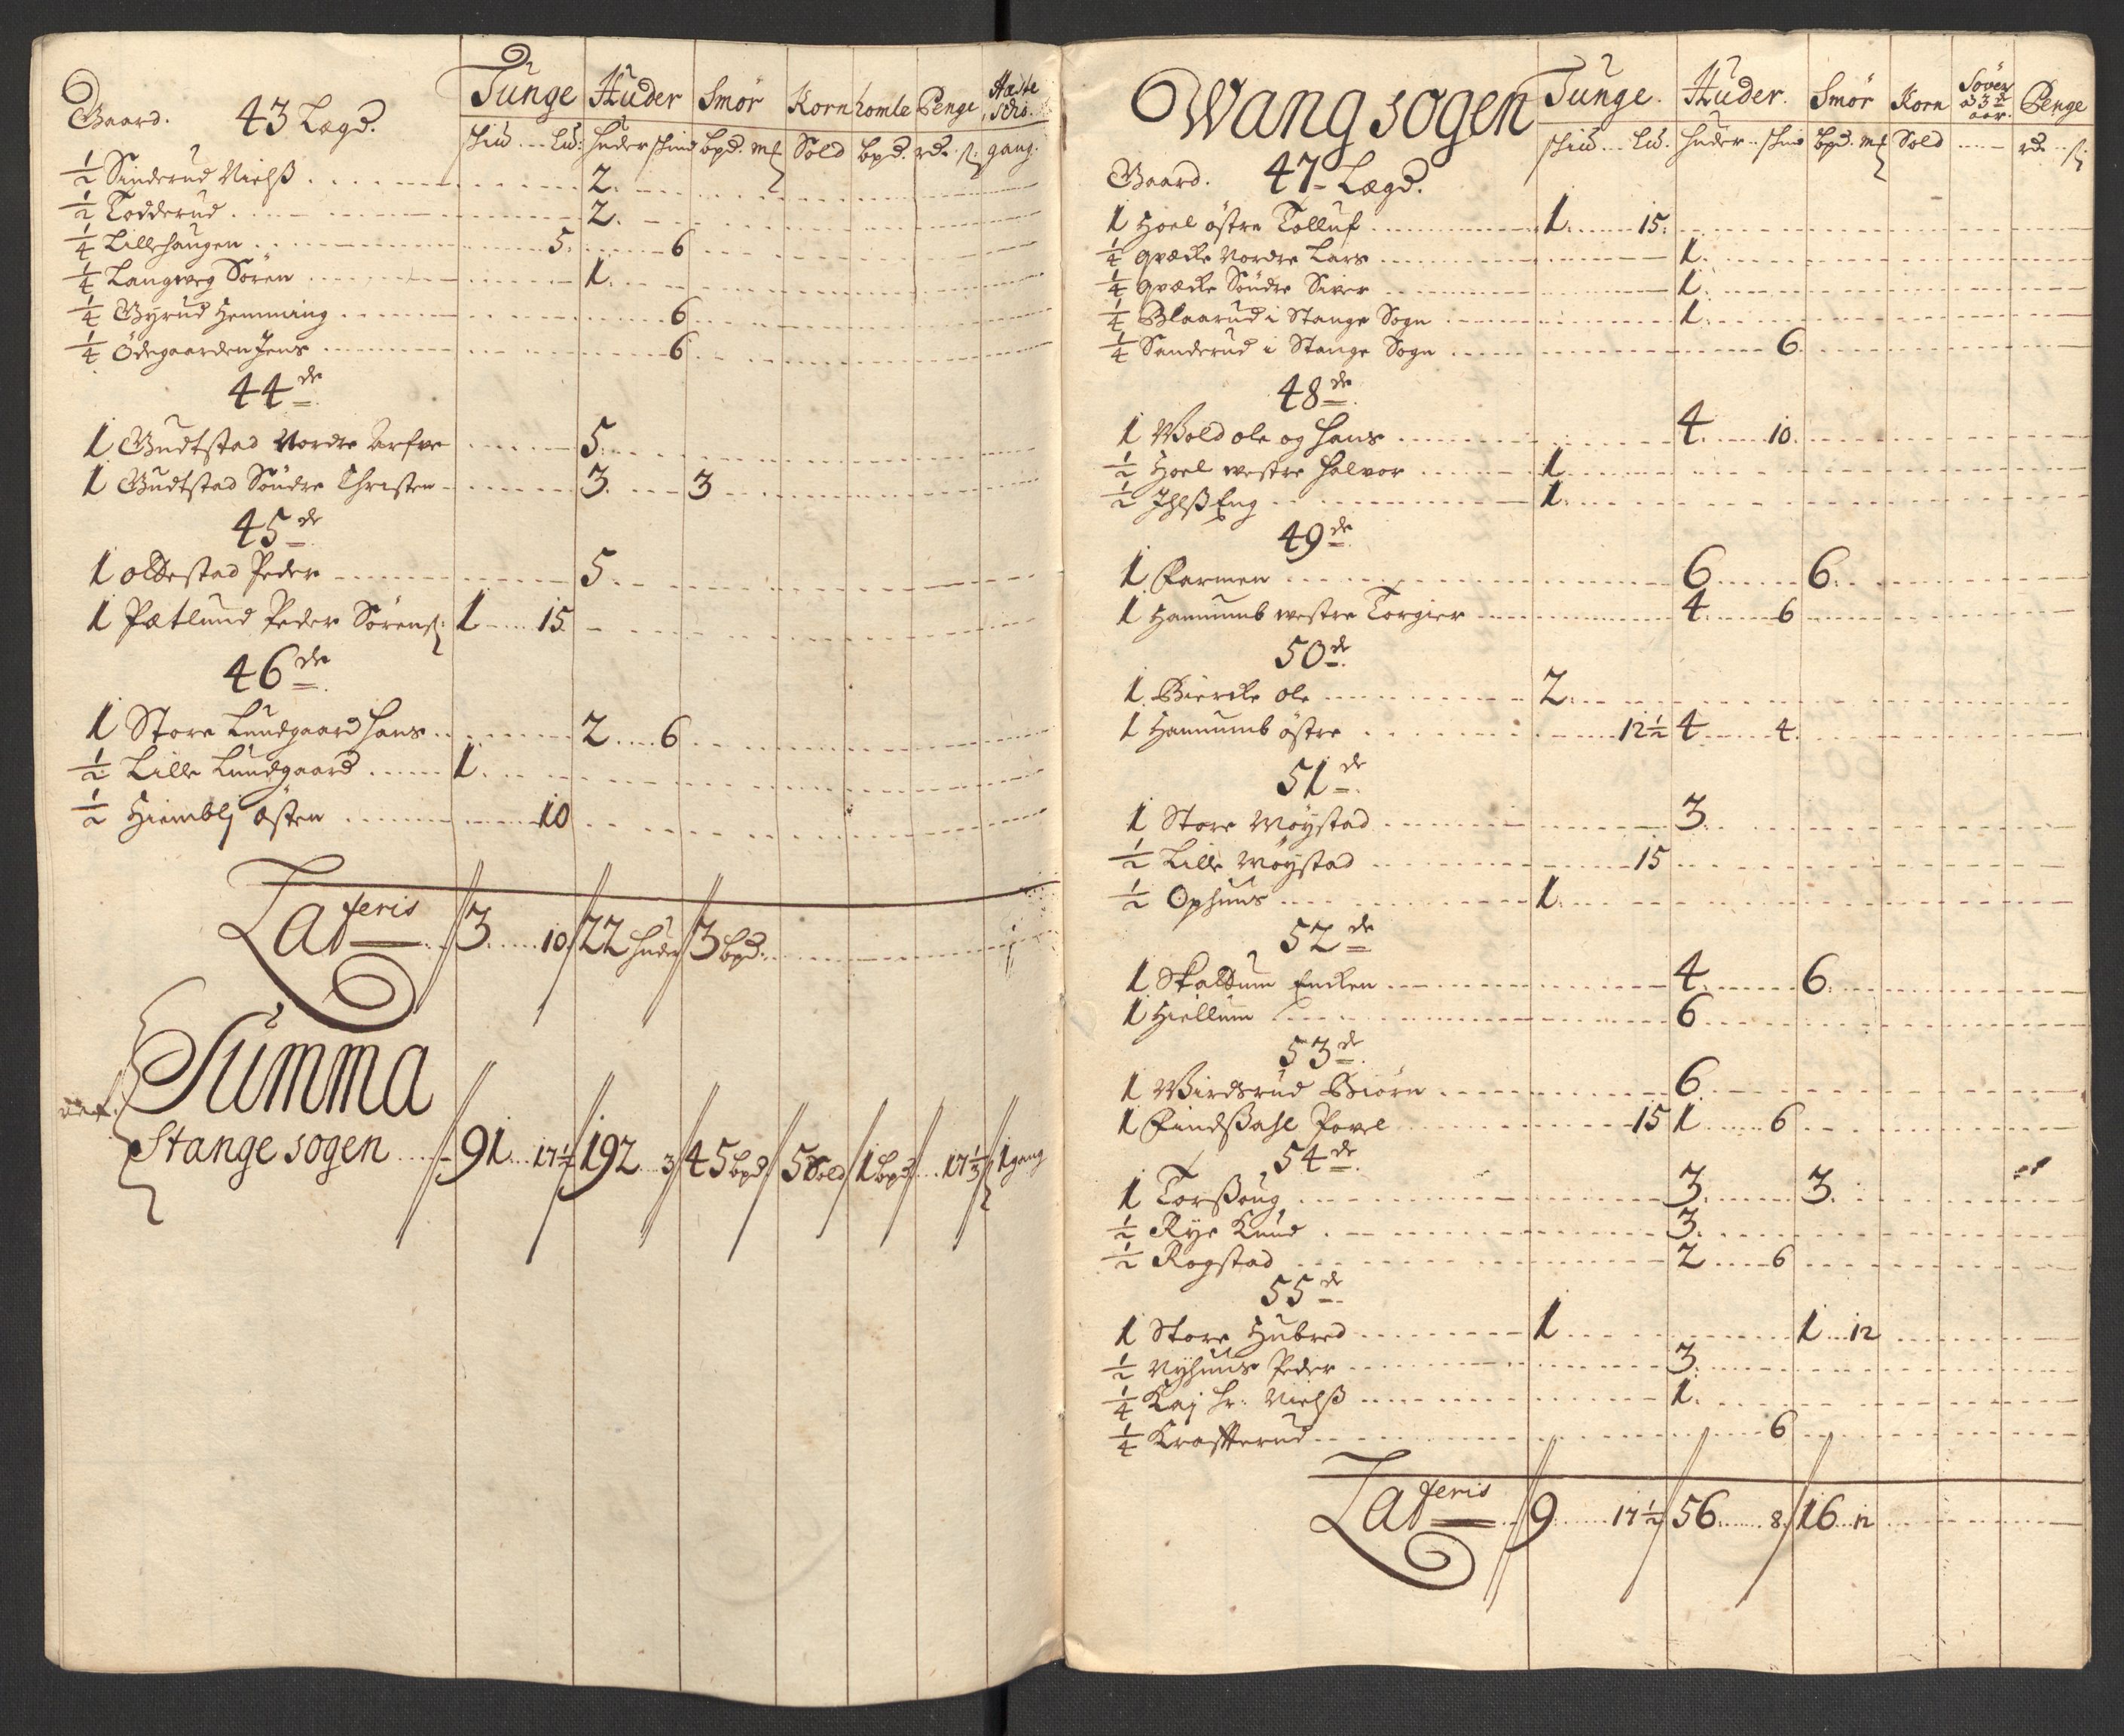 Gaard. 43 Lægd. Tunge Huder Smör Korn homle Penge Hæste skio.
skiu .. Lu: huder skind bpd. mk Sold bpd. rd. ß: gang.
1/2 Sinderud Nielß 2.
1/2 Todderud 2.
1/4 Lillehaugen 5. 6
1/4 Langweg Sören 1.
1/4 Byrud Hemming 6
1/4 Ödegaarden Jens 6
44de
1 Gudtstad Nordre Arfve 5.
1 Gudtstad Söndre Christen 3. 3
45de
1 Oldestad Peder 5
1 Pætlund Peder Sörenß: 1 15.
46de
1 Store Lundgaard Hans 2 6
1/2 Lille Lundgaard 1.
1/2 Hiembli Östen 10
Lateris 3. 10. 22 huder 3 bpd:
Summa
Stange sogen 91 17 1/2 192 3 45 bpd. 5 Sold 1 bpd 17 1/3 1 gang
Wang sogen Tunge. Huder. Smör Korn Söver Penge
skiu .. Lu. huder .. skind bpd. mk Sold rd. ß
Gaard. 47 Lægd.
1 Hoel östre Tolluf 1. 15.
1/4 Qvæcke Nordre Lars 1.
1/4 Qvæcke Söndre Siver 1.
1/4 Blaarud i Stange Sogn 1.
1/4 Sanderud i Stange Sogn 6.
48de
1 Wold ole og Hans 4. 10.
1/2 Hoel westre Halvor 1
1/2 Ihlß Eng 1.
49de
1 Farmen 6 6.
1 Hanumb westre Torgier 4. 6
50de
1 Biercke ole 2.
1 Hanumb östre 12 1/2 4 4.
51de
1 Store Möystad 3.
1/2 Lille Möystad 15
1/2 Ophuus 1.
52de
1 Skaldum Encken 4. 6.
1 Hiellum 6
53de
1 Wirdsrud Biörn 6.
1 Findßahl Povel 15 1 6
54de
1 Torßoug 3. 3.
1/2 Rye Knud 3.
1/2 Rogstad 2 6
55de
1 Store Hubred 1 1 12
1/2 Nyhuus Peder 3.
1/4 Kaj hr: Nielß 1.
1/4 Krafterud 6
Lateris 9. 17 1/2 56 8. 16 12